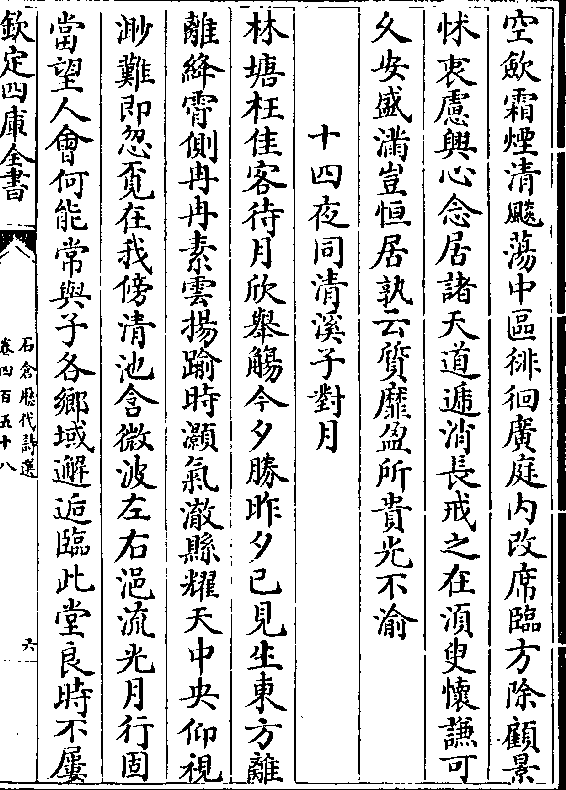 空歛霜煙清飈蕩中區徘徊廣庭内改席臨方除顧景
怵衷慮興心念居諸天道遞消長戒之在湏臾懷謙可
久安盛滿豈恒居孰云質靡盈所貴光不渝
十四夜同清溪子對月
林塘枉佳客待月欣舉觴今夕勝昨夕已見生東方離
離絳霄側冉冉素雲揚踰時灝氣澈縣耀天中央仰視
渺難即忽覔在我傍清池含微波左右浥流光月行固
當望人會何能常與子各鄉域邂逅臨此堂良時不屢
欽定四庫全書
石倉歷代詩選
卷四百五十八
六